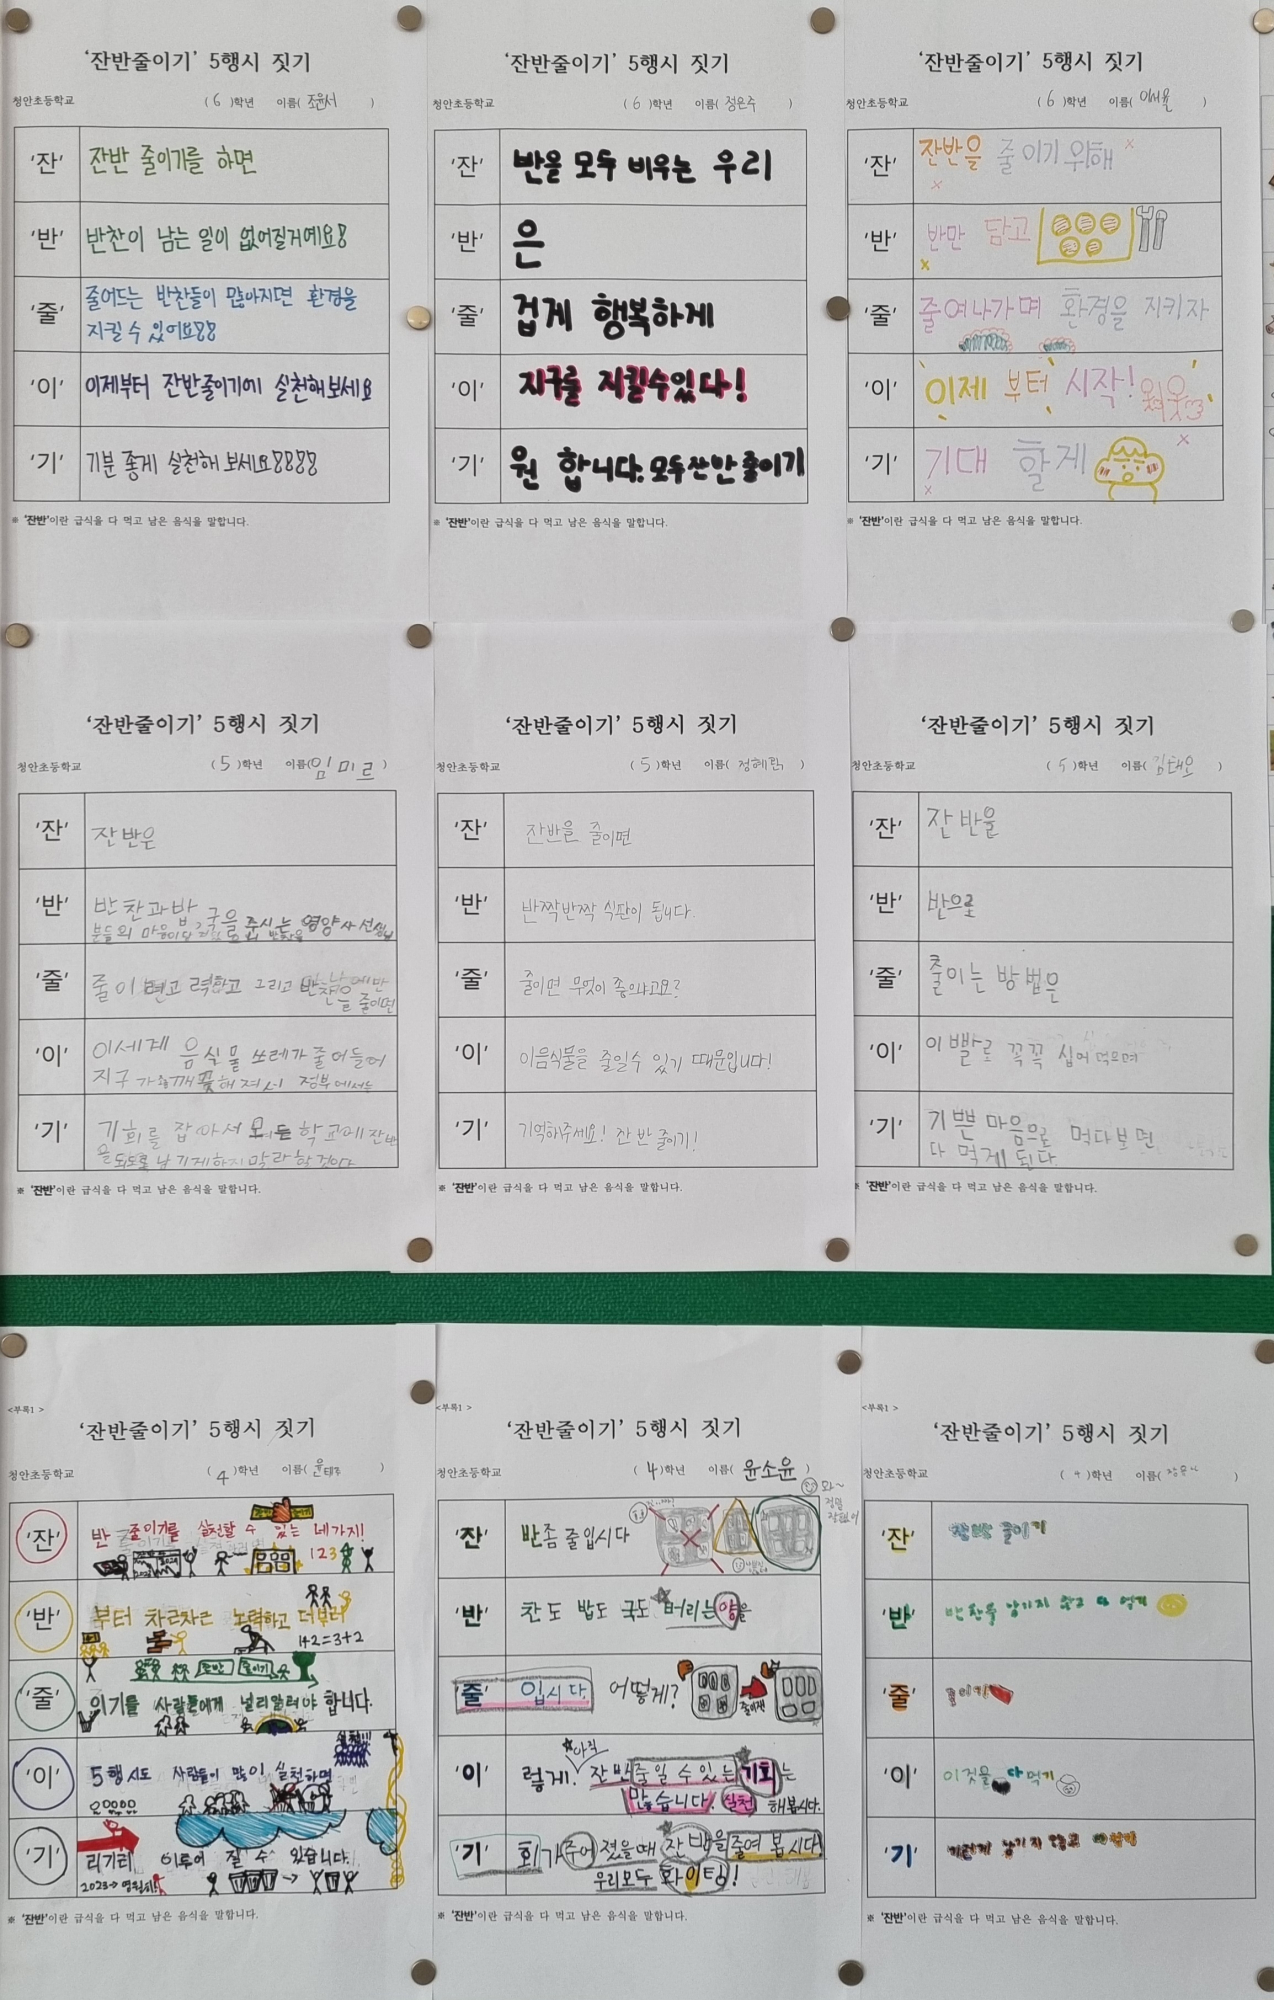 '잔반줄이기' 5행시 짓기
청안초등학교 ( 6 )학년 이름( 조윤서 )
'잔' 잔반 줄이기를 하면
'반' 반찬이 남는 일이 없어질거예요!
'줄' 줄어드는 반찬들이 많아지면 환경을
지킬 수 있어요!!
'이' 이제부터 잔반줄이기에 실천해보세요
'기' 기분 좋게 실천해 보세요!!!!
※ '잔반'이란 급식을 다 먹고 남은 음식을 말합니다.
'잔반줄이기' 5행시 짓기
청안초등학교 ( 6 )학년 이름( 정은주 )
'잔' 반을 모두 비우는 우리
'반' 은
'줄' 겁게 행복하게
'이' 지구를 지킬수있다!
'기' 원 합니다. 모두 잔반 줄이기
※ '잔반'이란 급식을 다 먹고 남은 음식을 말합니다.
'잔반줄이기' 5행시 짓기
청안초등학교 ( 6 )학년 이름( 이서율 )
'잔' 잔반을 줄이기 위해
'반' 반만 담고
'줄' 줄여나가며 환경을 지키자
'이' 이제 부터 시작!
'기' 기대 할게
※ '잔반'이란 급식을 다 먹고 남은 음식을 말합니다.
'잔반줄이기' 5행시 짓기
청안초등학교 ( 5 )학년 이름( 임미르 )
'잔' 잔반은
'반' 반찬과밥, 국을 주시는 영양사선생님
분들의 마음이담
'줄' 줄이 그리고
줄이면
'이' 이세계 음실물 쓰레가 줄어들어
지구 가 깨끗해져서 정부에서는
'기' 기회를 잡아서 모든 학교에 잔반
을 남기게하지 말라 할것이다
※ '잔반'이란 급식을 다 먹고 남은 음식을 말합니다.
'잔반줄이기' 5행시 짓기
청안초등학교 ( 5 )학년 이름( 정혜 )
'잔' 잔반을 줄이면
'반' 반짝반짝 식판이 됩니다.
'줄' 줄이면 무엇이 좋으냐고요?
'이' 이음식물을 줄일수 있기 때문입니다!
'기' 기억해주세요! 잔반 줄이기!
※ '잔반'이란 급식을 다 먹고 남은 음식을 말합니다.
'잔반줄이기' 5행시 짓기
청안초등학교 ( 5 )학년 이름( 김태오 )
'잔' 잔반을
'반' 반으로
'줄' 줄이는 방법은
'이' 이빨로 꼭꼭 씹어먹으며
'기' 기쁜 마음으로 먹다보면
다 먹게 된다.
※ '잔반'이란 급식을 다 먹고 남은 음식을 말합니다.
<부록1 >
'잔반줄이기' 5행시 짓기
청안초등학교 ( 4 )학년 이름( 윤태 )
'잔' 반 줄이기를 실천할 수 있는 네가지!
123
'반' 부터 차근차근 노력하고 더부터
1+2=3+2
'줄' 잔반 줄이기
이기를 사람들에게 널리알려야 합니다.
'이' 5행시도 사람들이 많이 실천하면
'기' 리기리 이루어 질 수 있습니다.
2023→영원히!
※ '잔반'이란 급식을 다 먹고 남은 음식을 말합니다.
<부록1 >
'잔반줄이기' 5행시 짓기
청안초등학교 ( 4 )학년 이름( 윤소윤 )
와~
정말
잘했어
'잔' 반좀 줄입시다
'반' 찬도 밥도 국도 버리는 양을
'줄' 입시다. 어떻게?
'이' 렇게! 아직 잔반줄일 수 있는 기회는
많습니다. 실천 해봅시다.
'기' 회가 주어 졌을때 잔반을 줄여 봅시다
우리모두 화이팅!
※ '잔반'이란 급식을 다 먹고 남은 음식을 말합니다.
<부록1 >
'잔반줄이기' 5행시 짓기
청안초등학교 ( 4 )학년 이름( )
'잔' 잔반 줄이기
'반' 반찬을 남기지 않고 다 먹기
'줄' 줄이기
'이' 이것을 다먹기
'기' 남기지 않고
※ '잔반'이란 급식을 다 먹고 남은 음식을 말합니다.